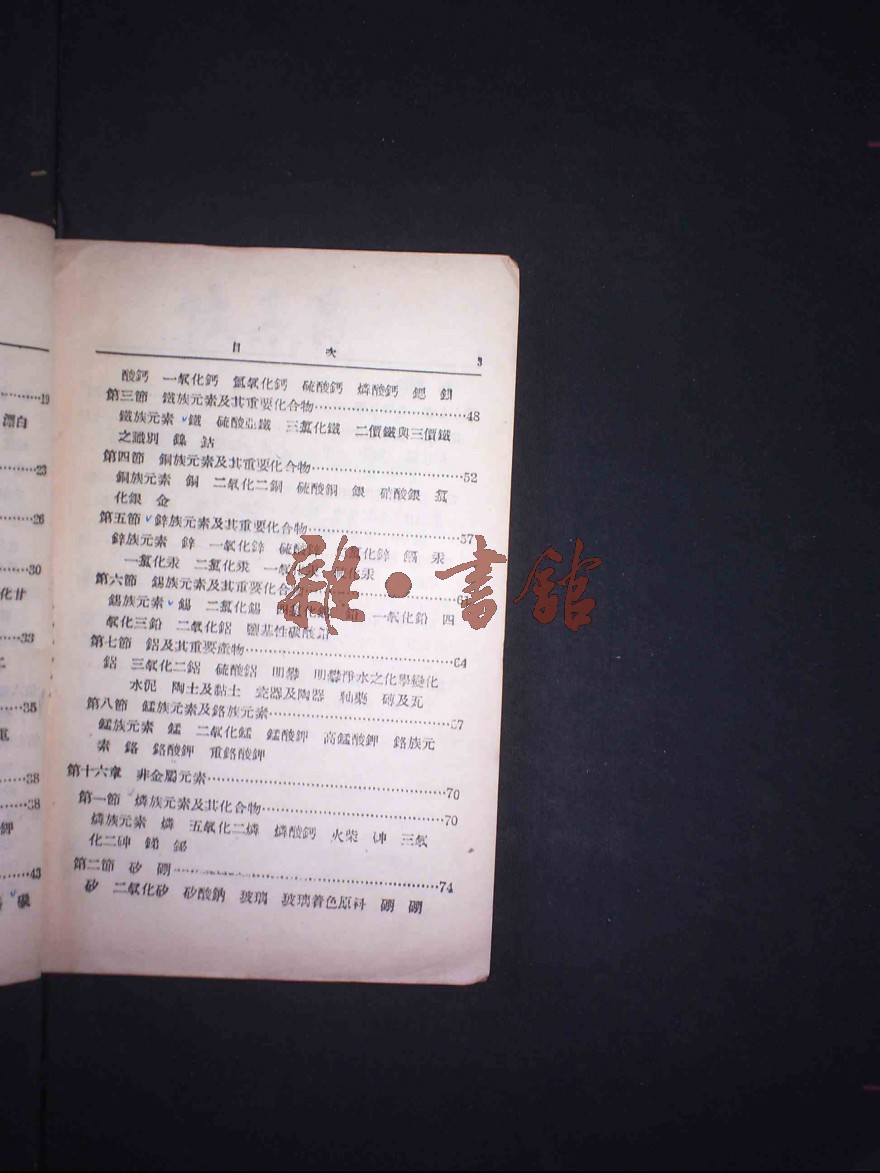 19
漂白
23
26
30
化甘
33
35
38
38
鉀
43
目 次 3
酸鈣 一氧化鈣 氫氧化鈣 硫酸鈣 燐酸鈣 鍶 鋇
第三節 鐵族元素及其重要化合物……48
鐵族元素 鐵 硫酸亞鐵 三氯化鐵 二價鐵與三價鐵
之識別 鎳 鈷
第四節 銅族元素及其重要化合物……52
銅族元素 銅 二氧化二銅 硫酸銅 銀 硝酸銀 氯
化銀 金
第五節 鋅族元素及其重要化合物……57
鋅族元素 鋅 一氧化鋅 硫酸 化鋅 鎘 汞
一氯化汞 二氯化汞 一 汞
第六節 錫族元素及其重要化合物……
錫族元素 錫 二氯化錫 一氧化鉛 四
氧化三鉛 二氧化鉛 鹽基性碳酸鉛
第七節 鋁及其重要產物……64
鋁 三氧化二鋁 硫酸鋁 明礬 明礬淨水之化學變化
水泥 陶土及黏土 瓷器及陶器 釉藥 磚及瓦
第八節 錳族元素及鉻族元素……67
錳族元素 錳 二氧化錳 錳酸鉀 高錳酸鉀 鉻族元
素 鉻 鉻酸鉀 重鉻酸鉀
第十六章 非金屬元素……70
第一節 燐族元素及其化合物……70
燐族元素 燐 五氧化二燐 燐酸鈣 火柴 砷 三氧
化二砷 銻 鉍
第二節 矽 硼……74
矽 二氧化矽 矽酸鈉 玻璃 玻璃着色原料 硼 硼
雜·書館